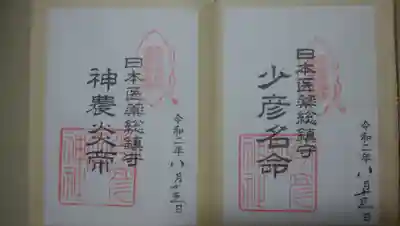 日本医薬総鎮守
少彦名命
令和二年八月十五日
日本医薬総鎮守
神農炎帝
令和二年八月十五日